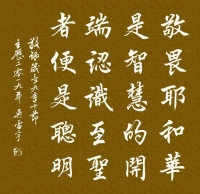 敬畏耶和華
是智慧的開
端認識至聖
者便是聰明
敬錄箴言九章十節
主歷二零一九年 吳雪宇